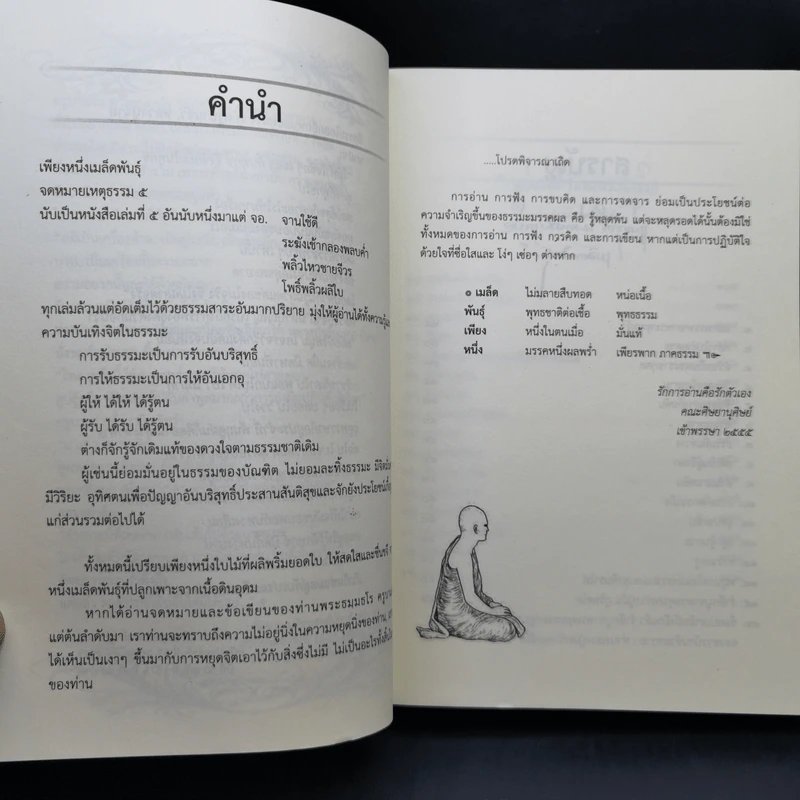 คำนำ
เพียงหนึ่งเมล็ดพันธุ์
จดหมายเหตุธรรม ๕
นับเป็นหนังสือเล่มที่ ๕ อันนับหนึ่งมาแต่ จอ. จานใช้ดี
ระฆังเช้ากลองพลบค่ำ
พลิ้วไหวชายจีวร
โพธิ์พลิ้วผลิใบ
ทุกเล่มล้วนแต่อัดเต็มไว้ด้วยธรรมสาระอันมากปริยาย มุ่งให้ผู้อ่านได้ทั้งความรู้
ความบันเทิงจิตในธรรมะ
การรับธรรมะเป็นการรับอันบริสุทธิ์
การให้ธรรมะเป็นการให้อันเอกอุ
ผู้ให้ ได้ให้ ได้รู้ตน
ผู้รับ ได้รับ ได้รู้ตน
ต่างก็จักรู้จักเดิมแท้ของดวงใจตามธรรมชาติเดิม
ผู้เช่นนี้ย่อมมั่นอยู่ในธรรมของบัณฑิต ไม่ยอมละทิ้งธรรมะ
มีวิริยะ อุทิศตนเพื่อปัญญาอันบริสุทธิ์ประสานสันติสุขและจักยังประโยชน์
แก่ส่วนรวมต่อไปได้
ทั้งหมดนี้เปรียบเพียงหนึ่งใบไม้ที่ผลิพริ้มยอดใบ ให้สดใสและชื่นขจี
หนึ่งเมล็ดพันธุ์ที่ปลูกเพาะจากเนื้อดินอุดม
หากได้อ่านจดหมายและข้อเขียนของท่านพระธมฺมธโร
แต่ต้นลำดับมา เราท่านจะทราบถึงความไม่อยู่นิ่งในความหยุดนิ่งของท่าน
ได้เห็นเป็นเงาๆ ขึ้นมากับการหยุดจิตเอาไว้กับสิ่งซึ่งไม่มี ไม่เป็นอะไรทั้งสิ้น
ของท่าน
.....โปรดพิจารณาเถิด
การอ่าน การฟัง การขบคิด และการจดจาร ย่อมเป็นประโยชน์ต่อ
ความจำเริญขึ้นของธรรมะมรรคผล คือ รู้หลุดพ้น แต่จะหลุดรอดได้นั้นต้องมิใช่
ทั้งหมดของการอ่าน การฟัง การคิด และการเขียน หากแต่เป็นการปฏิบัติใจ
ด้วยใจที่ซื่อใสและ โง่ๆ เซ่อๆ ต่างหาก
๏ เมล็ด ไม่มลายสืบทอด หน่อเนื้อ
พันธุ์ พุทธชาติต่อเชื้อ พุทธธรรม
เพียง หนึ่งในตนเมื่อ มั่นแท้
หนึ่ง มรรคหนึ่งผลพร่ำ เพียรพาก ภาคธรรม ๚๛
รักการอ่านคือรักตัวเอง
คณะศิษยานุศิษย์
เข้าพรรษา ๒๕๕๕